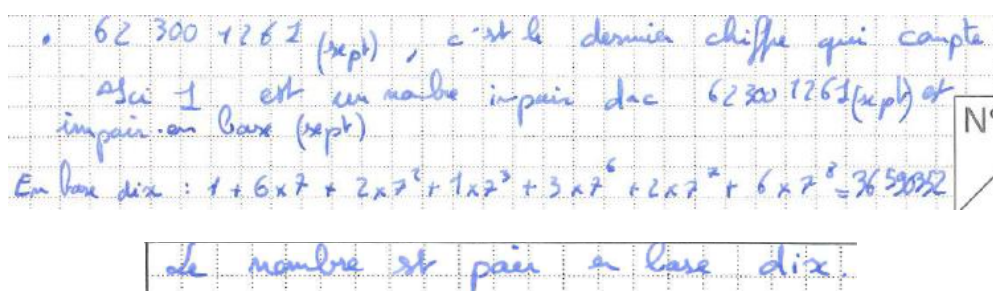 • 62 300 1261 (sept), c'est le dernier chiffre qui compte
Ici 1 est un nombre impair donc 62300 1261 (sept) est
impair en base (sept)
N°
En base dix : 1 + 6 x 7 + 2 x 7² + 1 x 7³ + 3 x 7⁶ + 2 x 7⁷ + 6 x 7⁸ = 36 590352
Le nombre est pair en base dix.